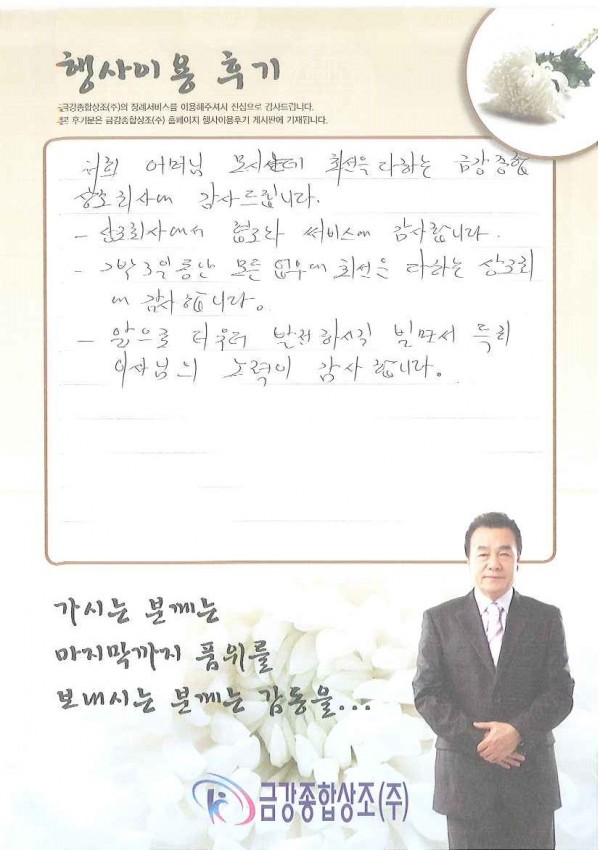 행사이용 후기
금강종합상조(주)의 장례서비스를 이용해주셔서 진심으로 감사드립니다.
본 후기분은 금강종합상조(주) 홈페이지 행사이용후기 게시판에 기재됩니다.
저희 어머님 모시는데 최선을 다하는 금강종합
상조회사에 감사드립니다.
- 상조회사에서 서비스에 감사합니다.
- 2박3일동안 모든 업무에 최선을 다하는 상조회
에 감사합니다.
- 앞으로 더욱더 발전하시길 빌면서 특히
이사님의 노력이 감사합니다.
가시는 분께는
마지막까지 품위를
보내시는 분께는 감동을...
금강종합상조(주)